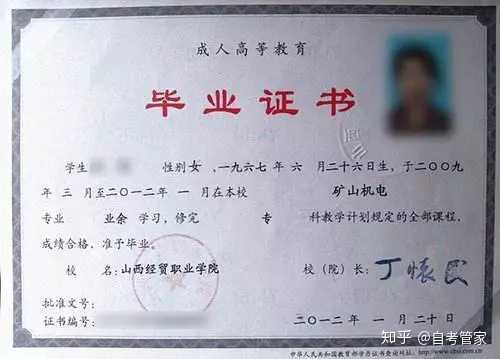 成人高等教育
毕业证书
学生 性别女,一九六七年 六 月二十六日生,于二〇〇九
年 三 月至二〇一二年 一 月在本校 矿山机电
专业 业余 学习,修完 专 科教学计划规定的全部课程,
成绩合格,准予毕业。
校 名:山西经贸职业学院 校(院)长:
批准文号:
证书编号: 二〇一二年 一 月二十日
知乎 @自考管家
中华人民共和国教育部学历证书查询网址:http://www.chsi.com.cn